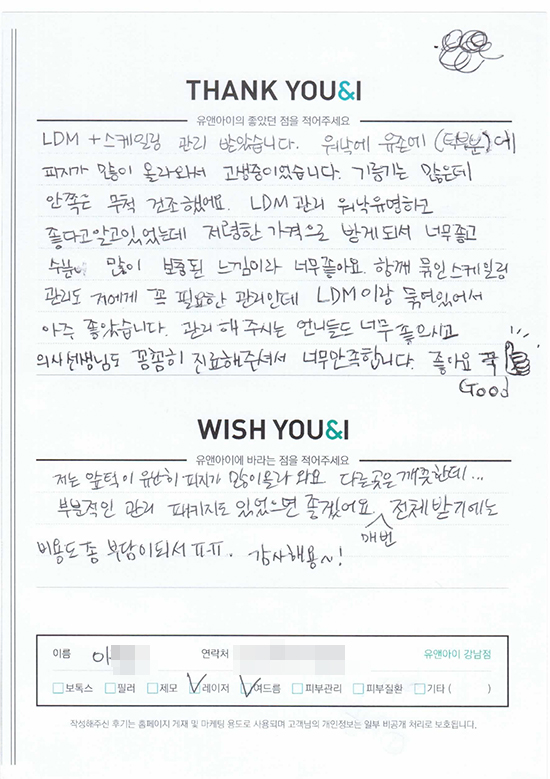 THANK YOU&I
유앤아이의 좋았던 점을 적어주세요
LDM + 스케일링 관리 받았습니다. 워낙에 유존에 (턱부분)에
피지가 많이 올라와서 고생중이었습니다. 기름기는 많은데
안쪽은 무척 건조했어요. LDM 관리 워낙유명하고
좋다고알고있었는데 저렴한 가격으로 받게되서 너무좋고
수분이 많이 보충된 느낌이라 너무좋아요. 함께 묶인스케일링
관리도 저에게 꼭 필요한 관리인데 LDM이랑 묶여있어서
아주 좋았습니다. 관리해주시는 언니들도 너무 좋으시고
의사선생님도 꼼꼼히 진료해주셔서 너무만족합니다. 좋아요 꾹
Good
WISH YOU&I
유앤아이에 바라는 점을 적어주세요
저는 앞턱이 유난히 피지가 많이올라 와요 다른곳은 깨끗한데...
부분적인 관리 패키지도 있었으면 좋겠어요. 전체 받기에는
매번
비용도 좀 부담이되서 ㅠㅠ. 감사해용~!
이름 이 연락처 유앤아이 강남점
보톡스 필러 제모 레이저 여드름 피부관리 피부질환 기타 ( )
작성해주신 후기는 홈페이지 게재 및 마케팅 용도로 사용되며 고객님의 개인정보는 일부 비공개 처리로 보호됩니다.